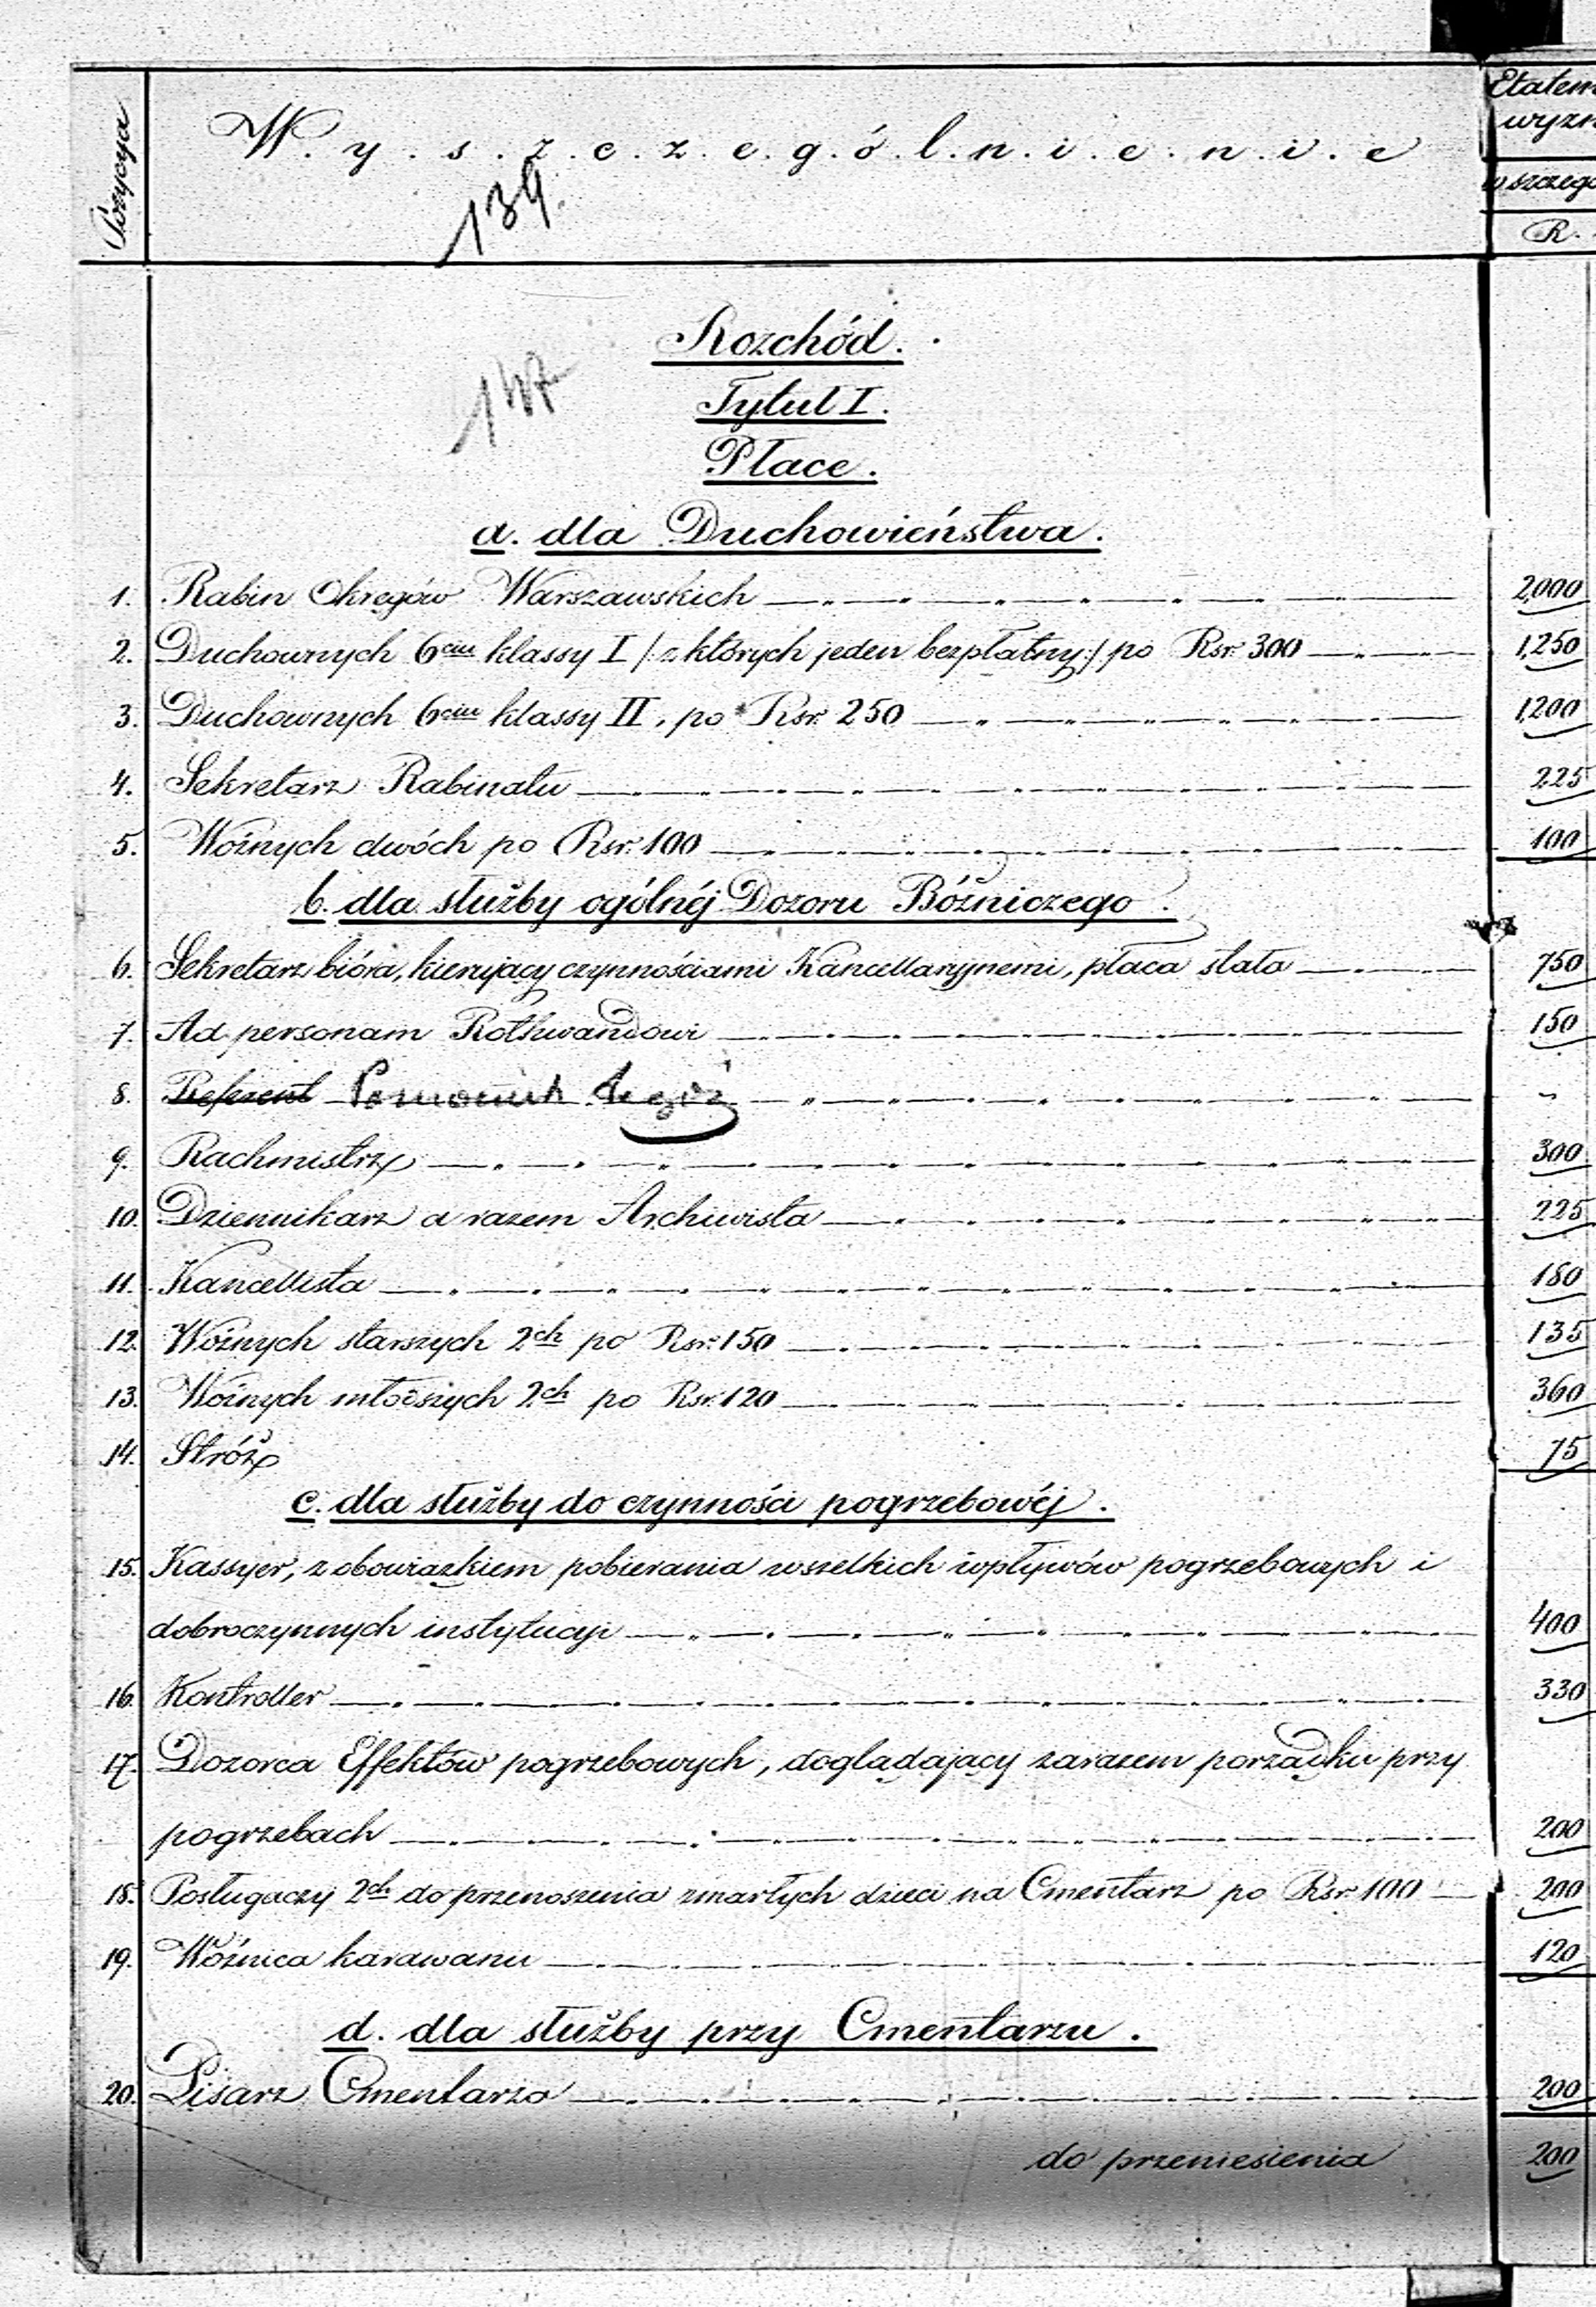 Pozycya
W.y.s.z.c.z.e.g.ó.l.n.i.e.n.i.e
Etatem
wyzn
w szczegó
R.
139.
147
Rozchód.
Tytuł I.
Płace.
a. dla Duchowieństwa.
1. Rabin Okręgów Warszawskich 2,000
2. Duchownych 6ciu klassy I /:z których jeden bezpłatny:/ po Rsr. 300 1,250
3. Duchownych 6ciu klassy II, po Rsr. 250 1,200
4. Sekretarz Rabinatu 225
5. Woźnych dwóch po Rsr. 100 100
b. dla służby ogólnéj Dozoru Bóźniczego.
6. Sekretarz bióra, kierujący czynnościami Kancellaryjnemi, płaca stała 750
7. Ad personam Rothwandowi 150
8. Referent Pomocnik tegoż -
9. Rachmistrz 300
10. Dziennikarz a razem Archiwista 225
11. Kancellista 180
12. Woźnych starszych 2ch po Rsr. 150 135
13. Woźnych młodszych 2ch po Rsr. 120 360
14. Stróż 75
c. dla służby do czynności pogrzebowéj.
15. Kassyer, z obowiązkiem pobierania wszelkich wpływów pogrzebowych i
dobroczynnych instytucyi 400
16. Kontroller 330
17. Dozorca Effektów pogrzebowych, doglądający zarazem porządku przy
pogrzebach 200
18. Posługaczy 2ch do przenoszenia zmarłych dzieci na Cmentarz po Rsr. 100 200
19. Woźnica karawanu 120
d. dla służby przy Cmentarzu.
20. Pisarz Cmentarza 200
do przeniesienia 200